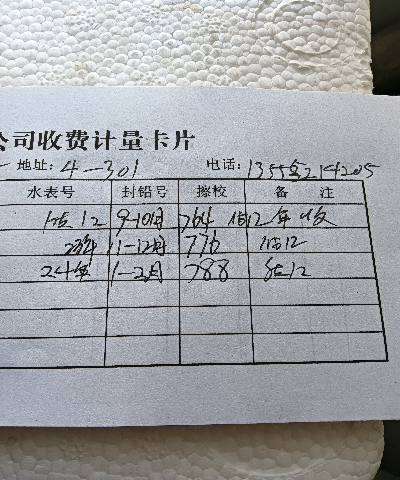 公司收费计量卡片
地址: 4-301 电话:
水表号 封铅号 擦校 备 注
12 9-10月 764 估12 年收
23年 11-12月 776 估12
24年 1-2月 788 估12